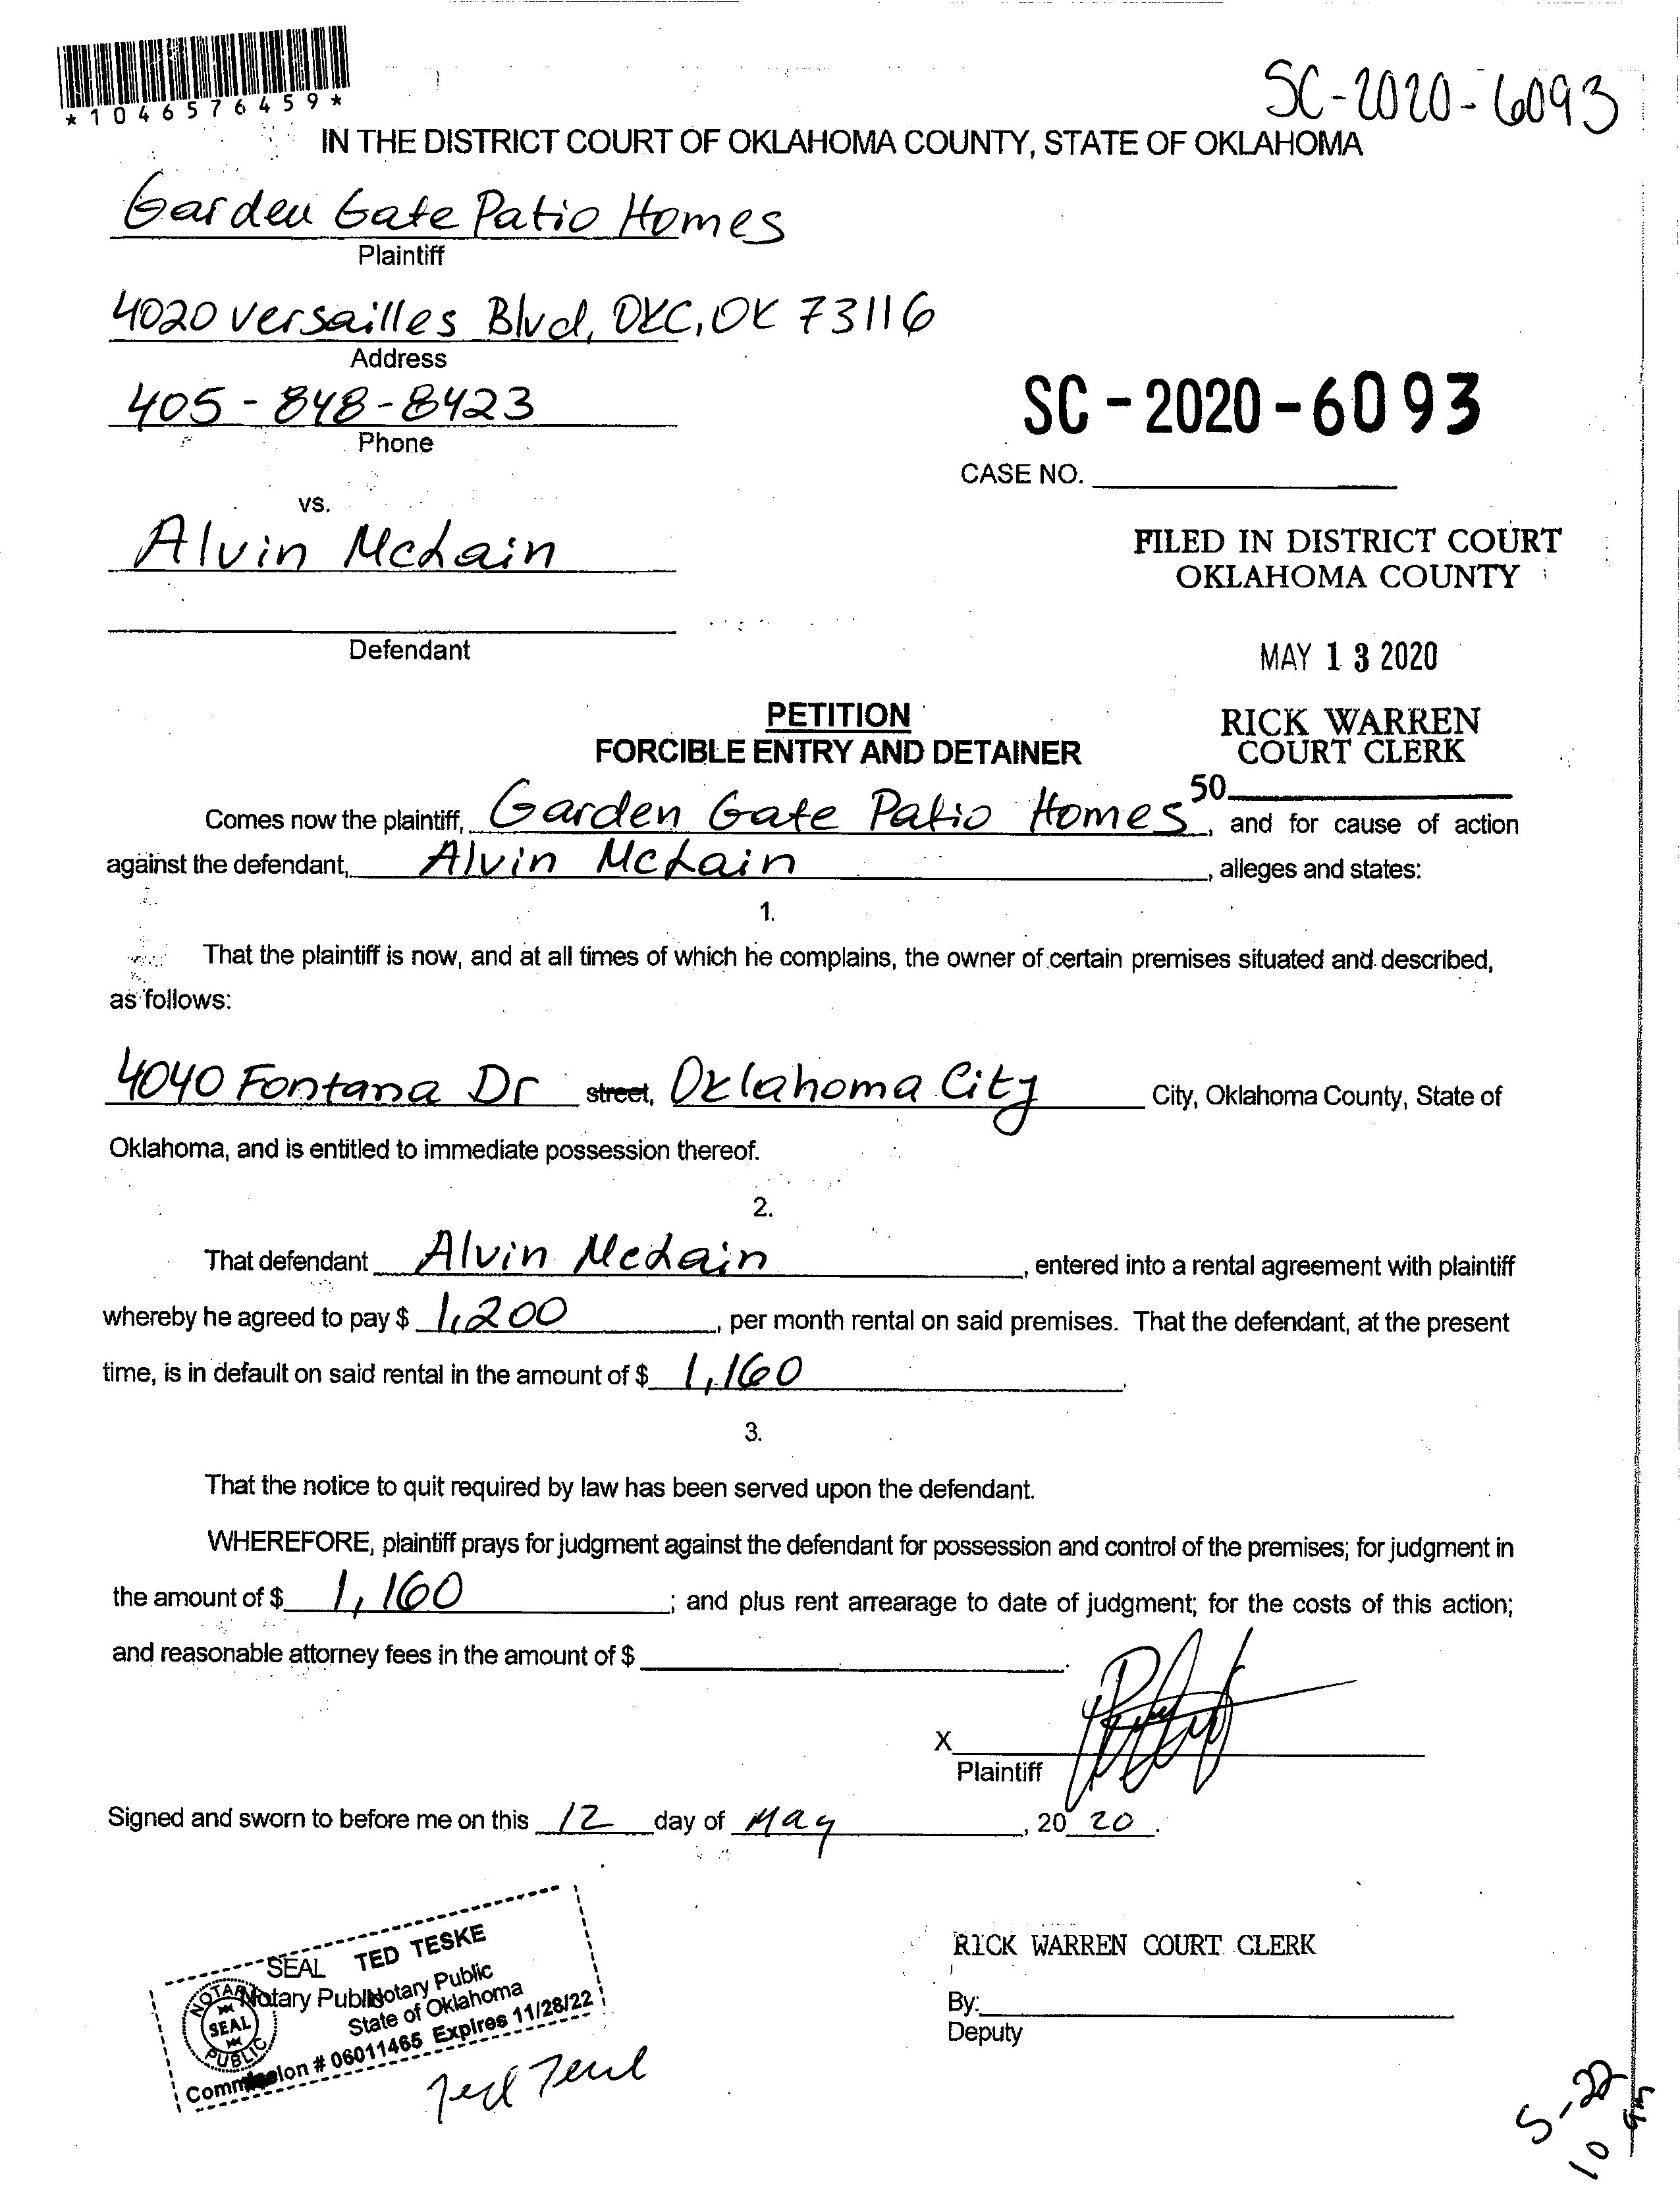 *1046576459*
SC-2020-6093
IN THE DISTRICT COURT OF OKLAHOMA COUNTY, STATE OF OKLAHOMA
Garden Gate Patio Homes
Plaintiff
4020 Versailles Blvd, OKC, OK 73116
Address
405-848-8423
Phone
SC-2020-6093
CASE NO.
vs.
Alvin McLain
FILED IN DISTRICT COURT
OKLAHOMA COUNTY
Defendant
MAY 13 2020
PETITION
FORCIBLE ENTRY AND DETAINER
RICK WARREN
COURT CLERK
50
Comes now the plaintiff, Garden Gate Patio Homes, and for cause of action
against the defendant, Alvin McLain, alleges and states:
1.
That the plaintiff is now, and at all times of which he complains, the owner of certain premises situated and described,
as follows:
4040 Fontana Dr street, Oklahoma City City, Oklahoma County, State of
Oklahoma, and is entitled to immediate possession thereof.
2.
That defendant Alvin McLain, entered into a rental agreement with plaintiff
whereby he agreed to pay $ 1,200, per month rental on said premises. That the defendant, at the present
time, is in default on said rental in the amount of $ 1,160.
3.
That the notice to quit required by law has been served upon the defendant.
WHEREFORE, plaintiff prays for judgment against the defendant for possession and control of the premises; for judgment in
the amount of $ 1,160; and plus rent arrearage to date of judgment; for the costs of this action;
and reasonable attorney fees in the amount of $ .
X
Plaintiff
Signed and sworn to before me on this 12 day of May, 2020.
SEAL TED TESKE
Notary Public
Notary Public
State of Oklahoma
Commission # 06011465 Expires 11/28/22
NOTARY
SEAL
PUBLIC
RICK WARREN COURT CLERK
By:
Deputy
5-22
10 am